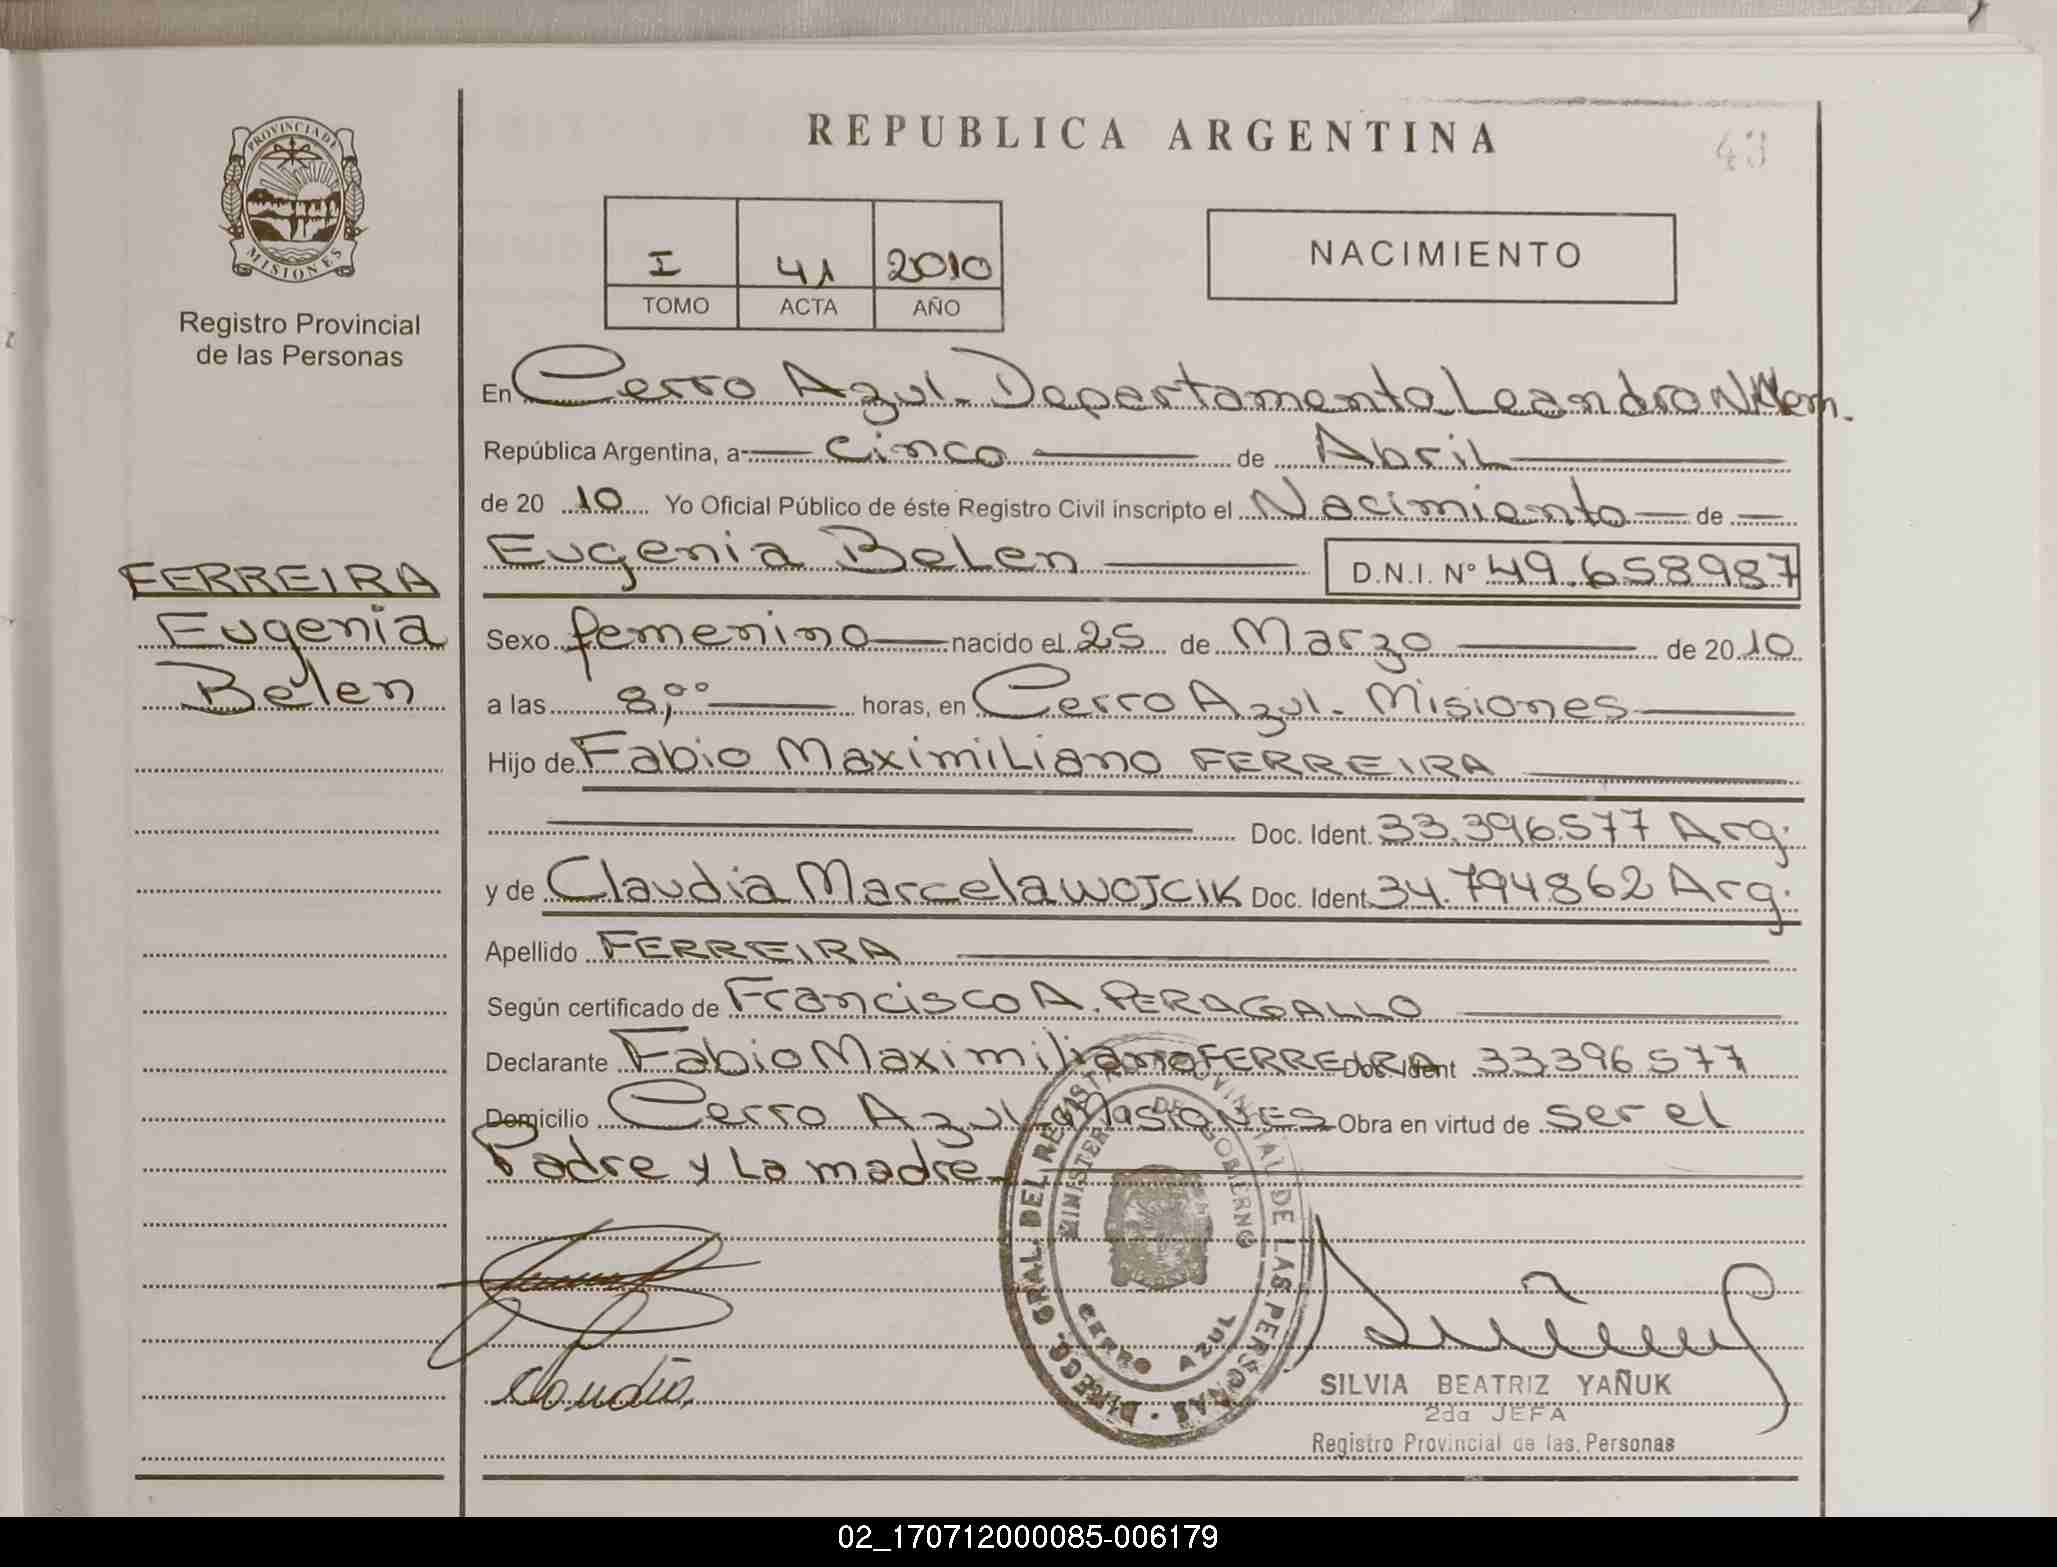 REPUBLICA ARGENTINA
43
PROVINCIA DE
MISIONES
Registro Provincial
de las Personas
I 41 2010
TOMO ACTA AÑO
NACIMIENTO
En Cerro Azul. Departamento Leandro N. Alem.
República Argentina, a cinco de Abril
de 20 10 Yo Oficial Público de éste Registro Civil inscripto el Nacimiento de
Eugenia Belen D.N.I. N° 49.658987
FERREIRA
Eugenia
Belen
Sexo femenino nacido el 25 de Marzo de 20 10
a las 8,00 horas, en Cerro Azul. Misiones
Hijo de Fabio Maximiliano FERREIRA
Doc. Ident. 33.396.577 Arg.
y de Claudia Marcela WOJCIK Doc. Ident. 34.794.862 Arg.
Apellido FERREIRA
Según certificado de Francisco A. PERAGALLO
Declarante Fabio Maximiliano FERREIRA Doc. Ident 33.396.577
Domicilio Cerro Azul Misiones Obra en virtud de ser el
Padre y La madre
DIRECC. GRAL. DEL REGISTRO PROVINCIAL DE LAS PERSONAS
MINISTERIO DE GOBIERNO
CERRO AZUL
Claudia
SILVIA BEATRIZ YAÑUK
2da JEFA
Registro Provincial de las Personas
02_170712000085-006179